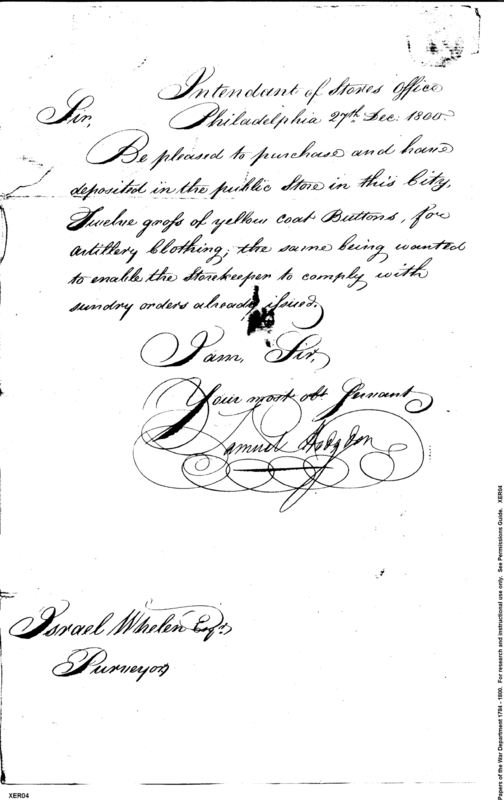 Intendant of Stores Office
Philadelphia 27th. Dec. 1800.
Sir,
Be pleased to purchase and have
deposited in the public Store in this City,
Twelve groſs of yellow coat Buttons, for
Artillery Clothing; the same being wanted
to enable the Storekeeper to comply with
sundry orders already iſsued.
I am, Sir,
Your most obt Servant
Samuel Hodgdon
Israel Whelen Esqr.
Purveyor
XER04
Papers of the War Department 1784 - 1800. For research and instructional use only. See Permissions Guide. XER04